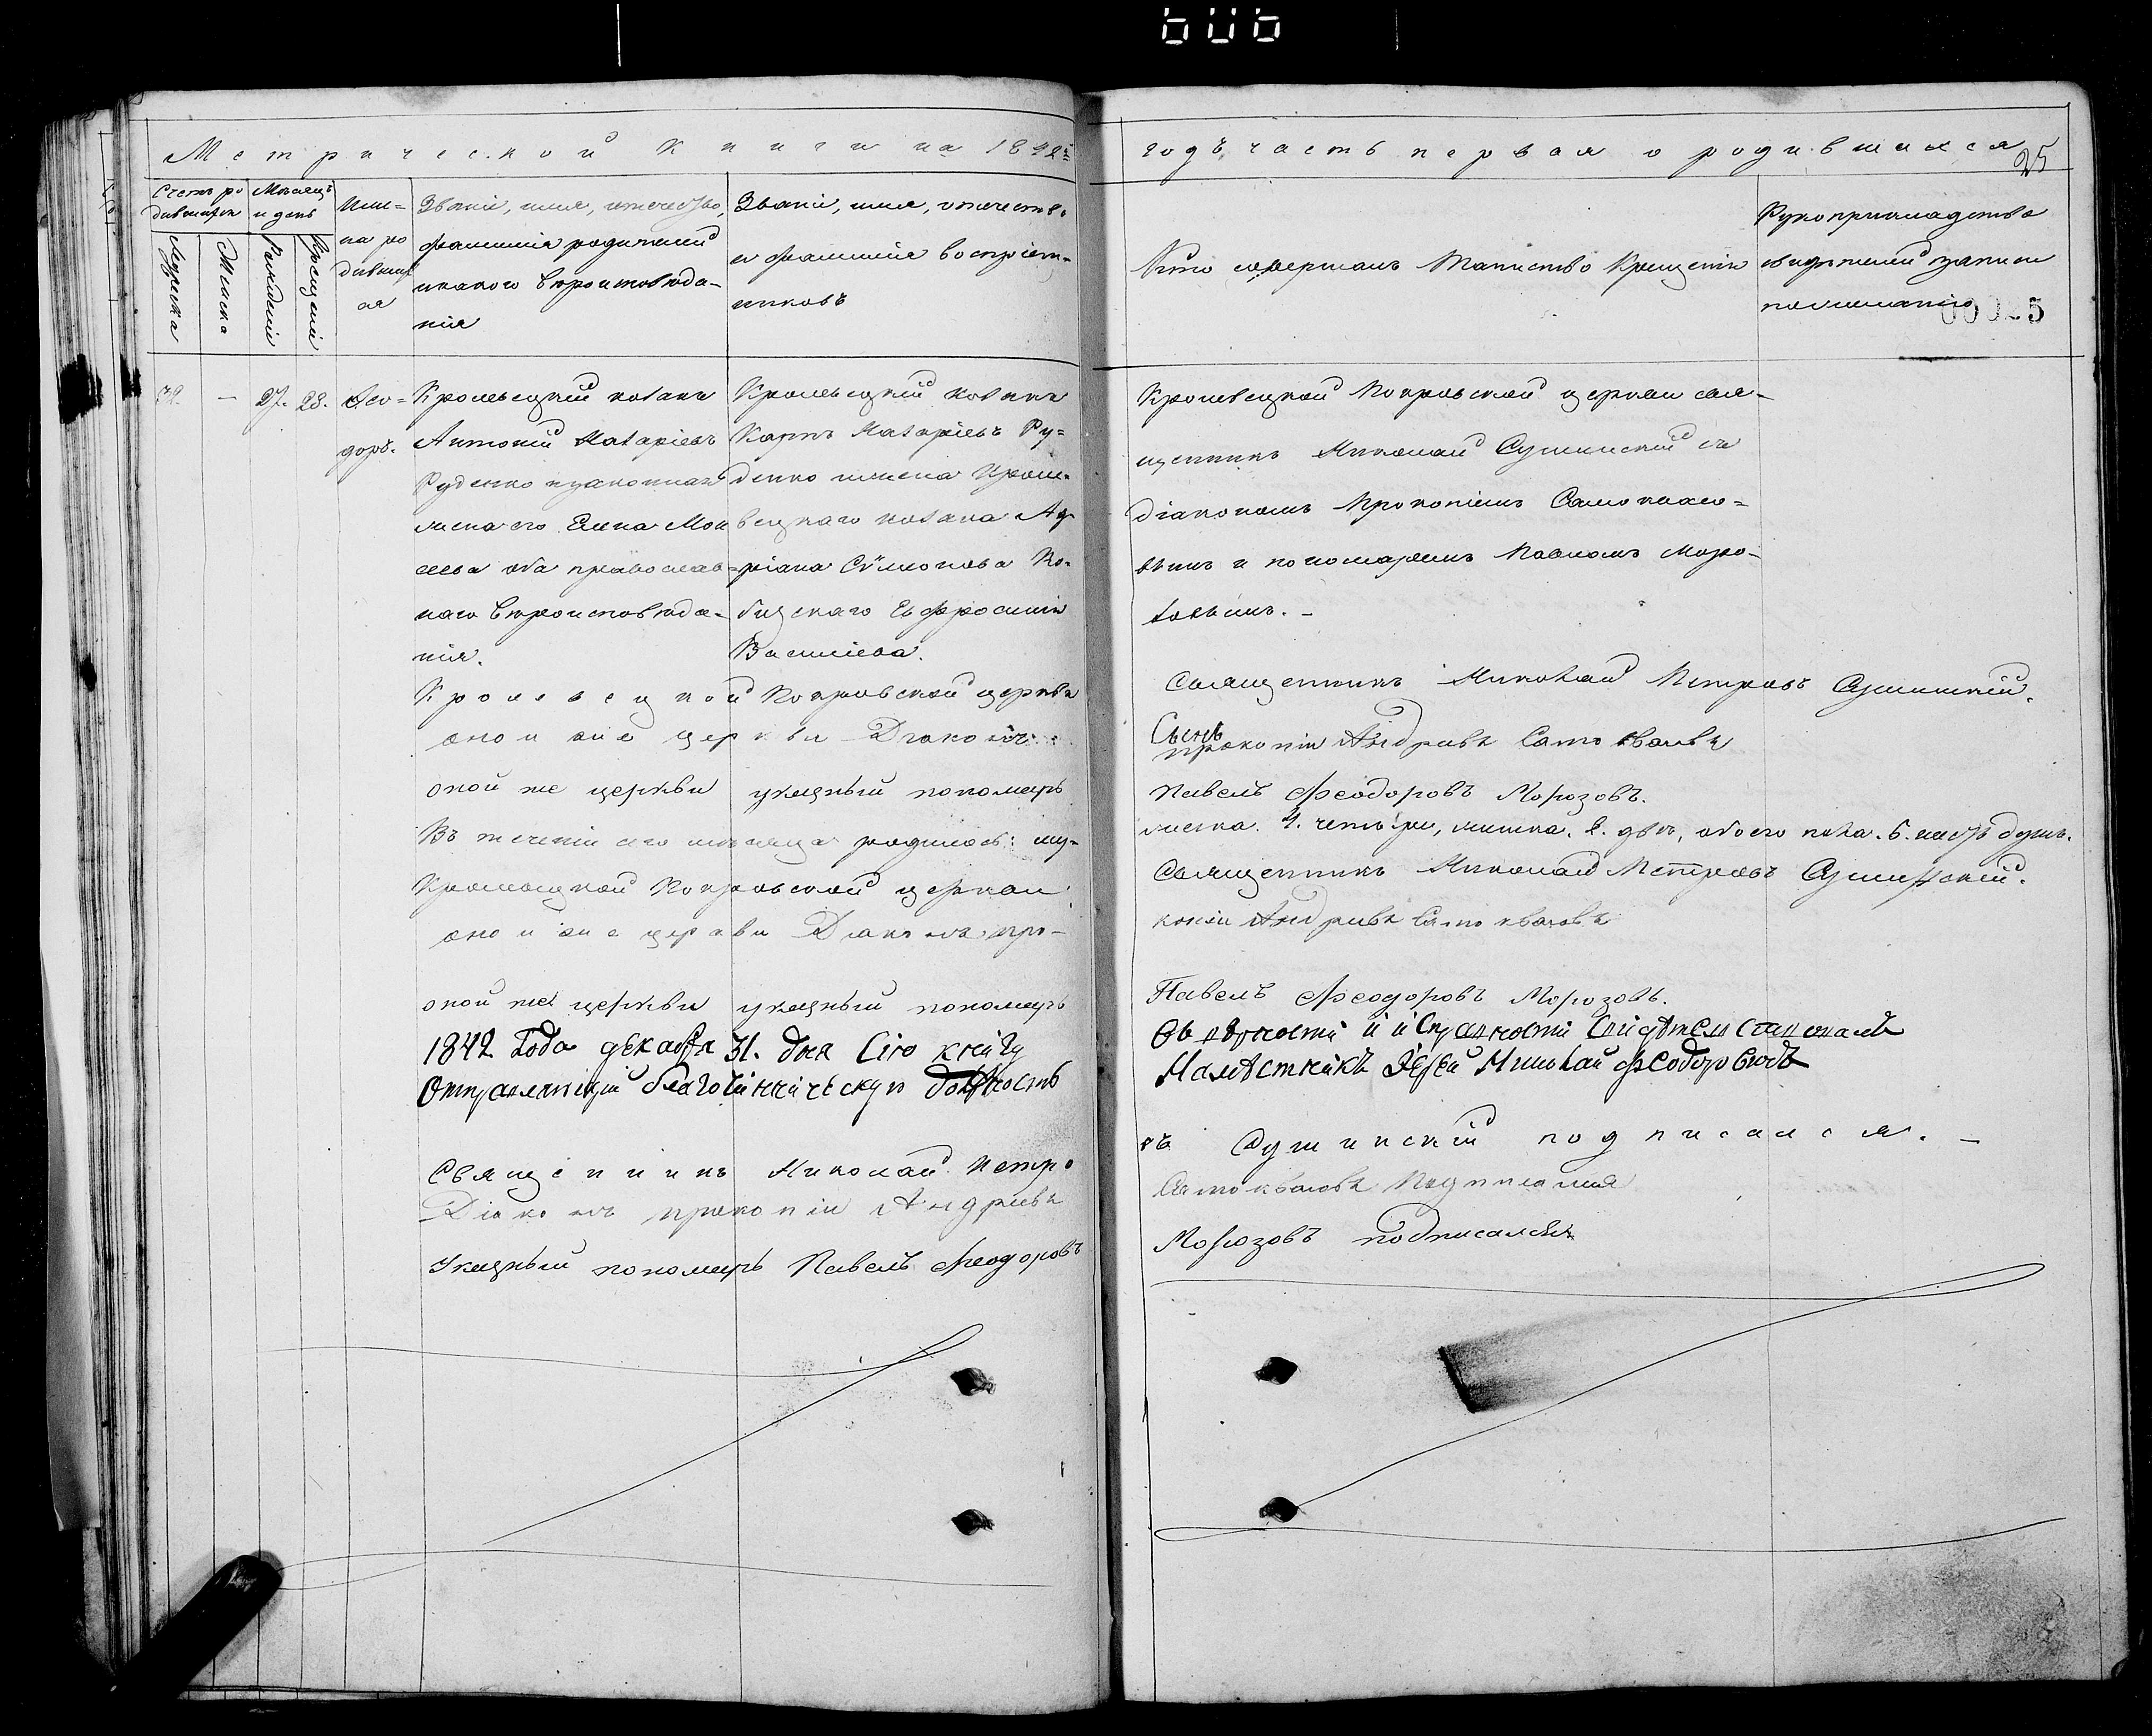 Метрической книги на 1842й
годъ часть первая о родившихся
25
Счетъ ро
дившихся
Мѣсяцъ
и день
Мужеска
Женска
Рожденія
Крещенія
Име=
на ро
дивших
ся
Званіе, имя, отчество,
фамилія родителей
и какого вѣроисповѣда-
нія
Званіе, имя, отчество
и фамилія воспріем-
никовъ
Кто совершалъ таинство крещенія
Рукоприкладство
свидѣтелей записи
по желанію
32. – 27. 28.
Исидоръ.
Кролевецкій козакъ
Антоній Назаріевъ
Руденко и законная
жена его Елена Мои
сеева оба православ=
наго вѣроисповѣда-
нія.
Кролевецкій козакъ
Карпъ Назаріевъ Ру=
денко и жена Кроле-
вецкаго козака Ад-
ріана Сѵмонова Ко-
бицкаго Евфросинія
Василіева.
Кролевецкой Покровской церкви свя-
щенникъ Николай Сушинскій съ
діакономъ Прокопіемъ Самоквасо-
вымъ и пономаремъ Павломъ Моро-
зовымъ. –
Кролевецкой Покровской церкви
Священникъ Николай Петровъ Сушинскій.
оной же церкви Діаконъ
Прокопій Андріевъ Самоквасовъ
оной же церкви указный пономарь
Павелъ Феодоровъ Морозовъ.
Въ теченіи сего мѣсяца родилось: му-
жеска. 4. четыре, женска. 2. двѣ, обоего пола. 6. шесть душъ.
Кролевецкой Покровской церкви
Священникъ Николай Петровъ Сушинскій.
оной же церкви Діаконъ Про-
копій Андріевъ Самоквасовъ
оной же церкви указный пономарь
Павелъ Феодоровъ Морозовъ.
1842 Года декабря 31. дня Сію книгу
Объ вѣрности и исправности
Отправляющій благочинническую должность
Намѣстникъ Іерей Николай Феодоровскій
Священникъ Николай Петро
въ Сушинскій подписался. –
Діаконъ Прокопій Андріевъ
Самоквасовъ Подписался
Указный пономарь Павелъ Феодоровъ
Морозовъ подписался